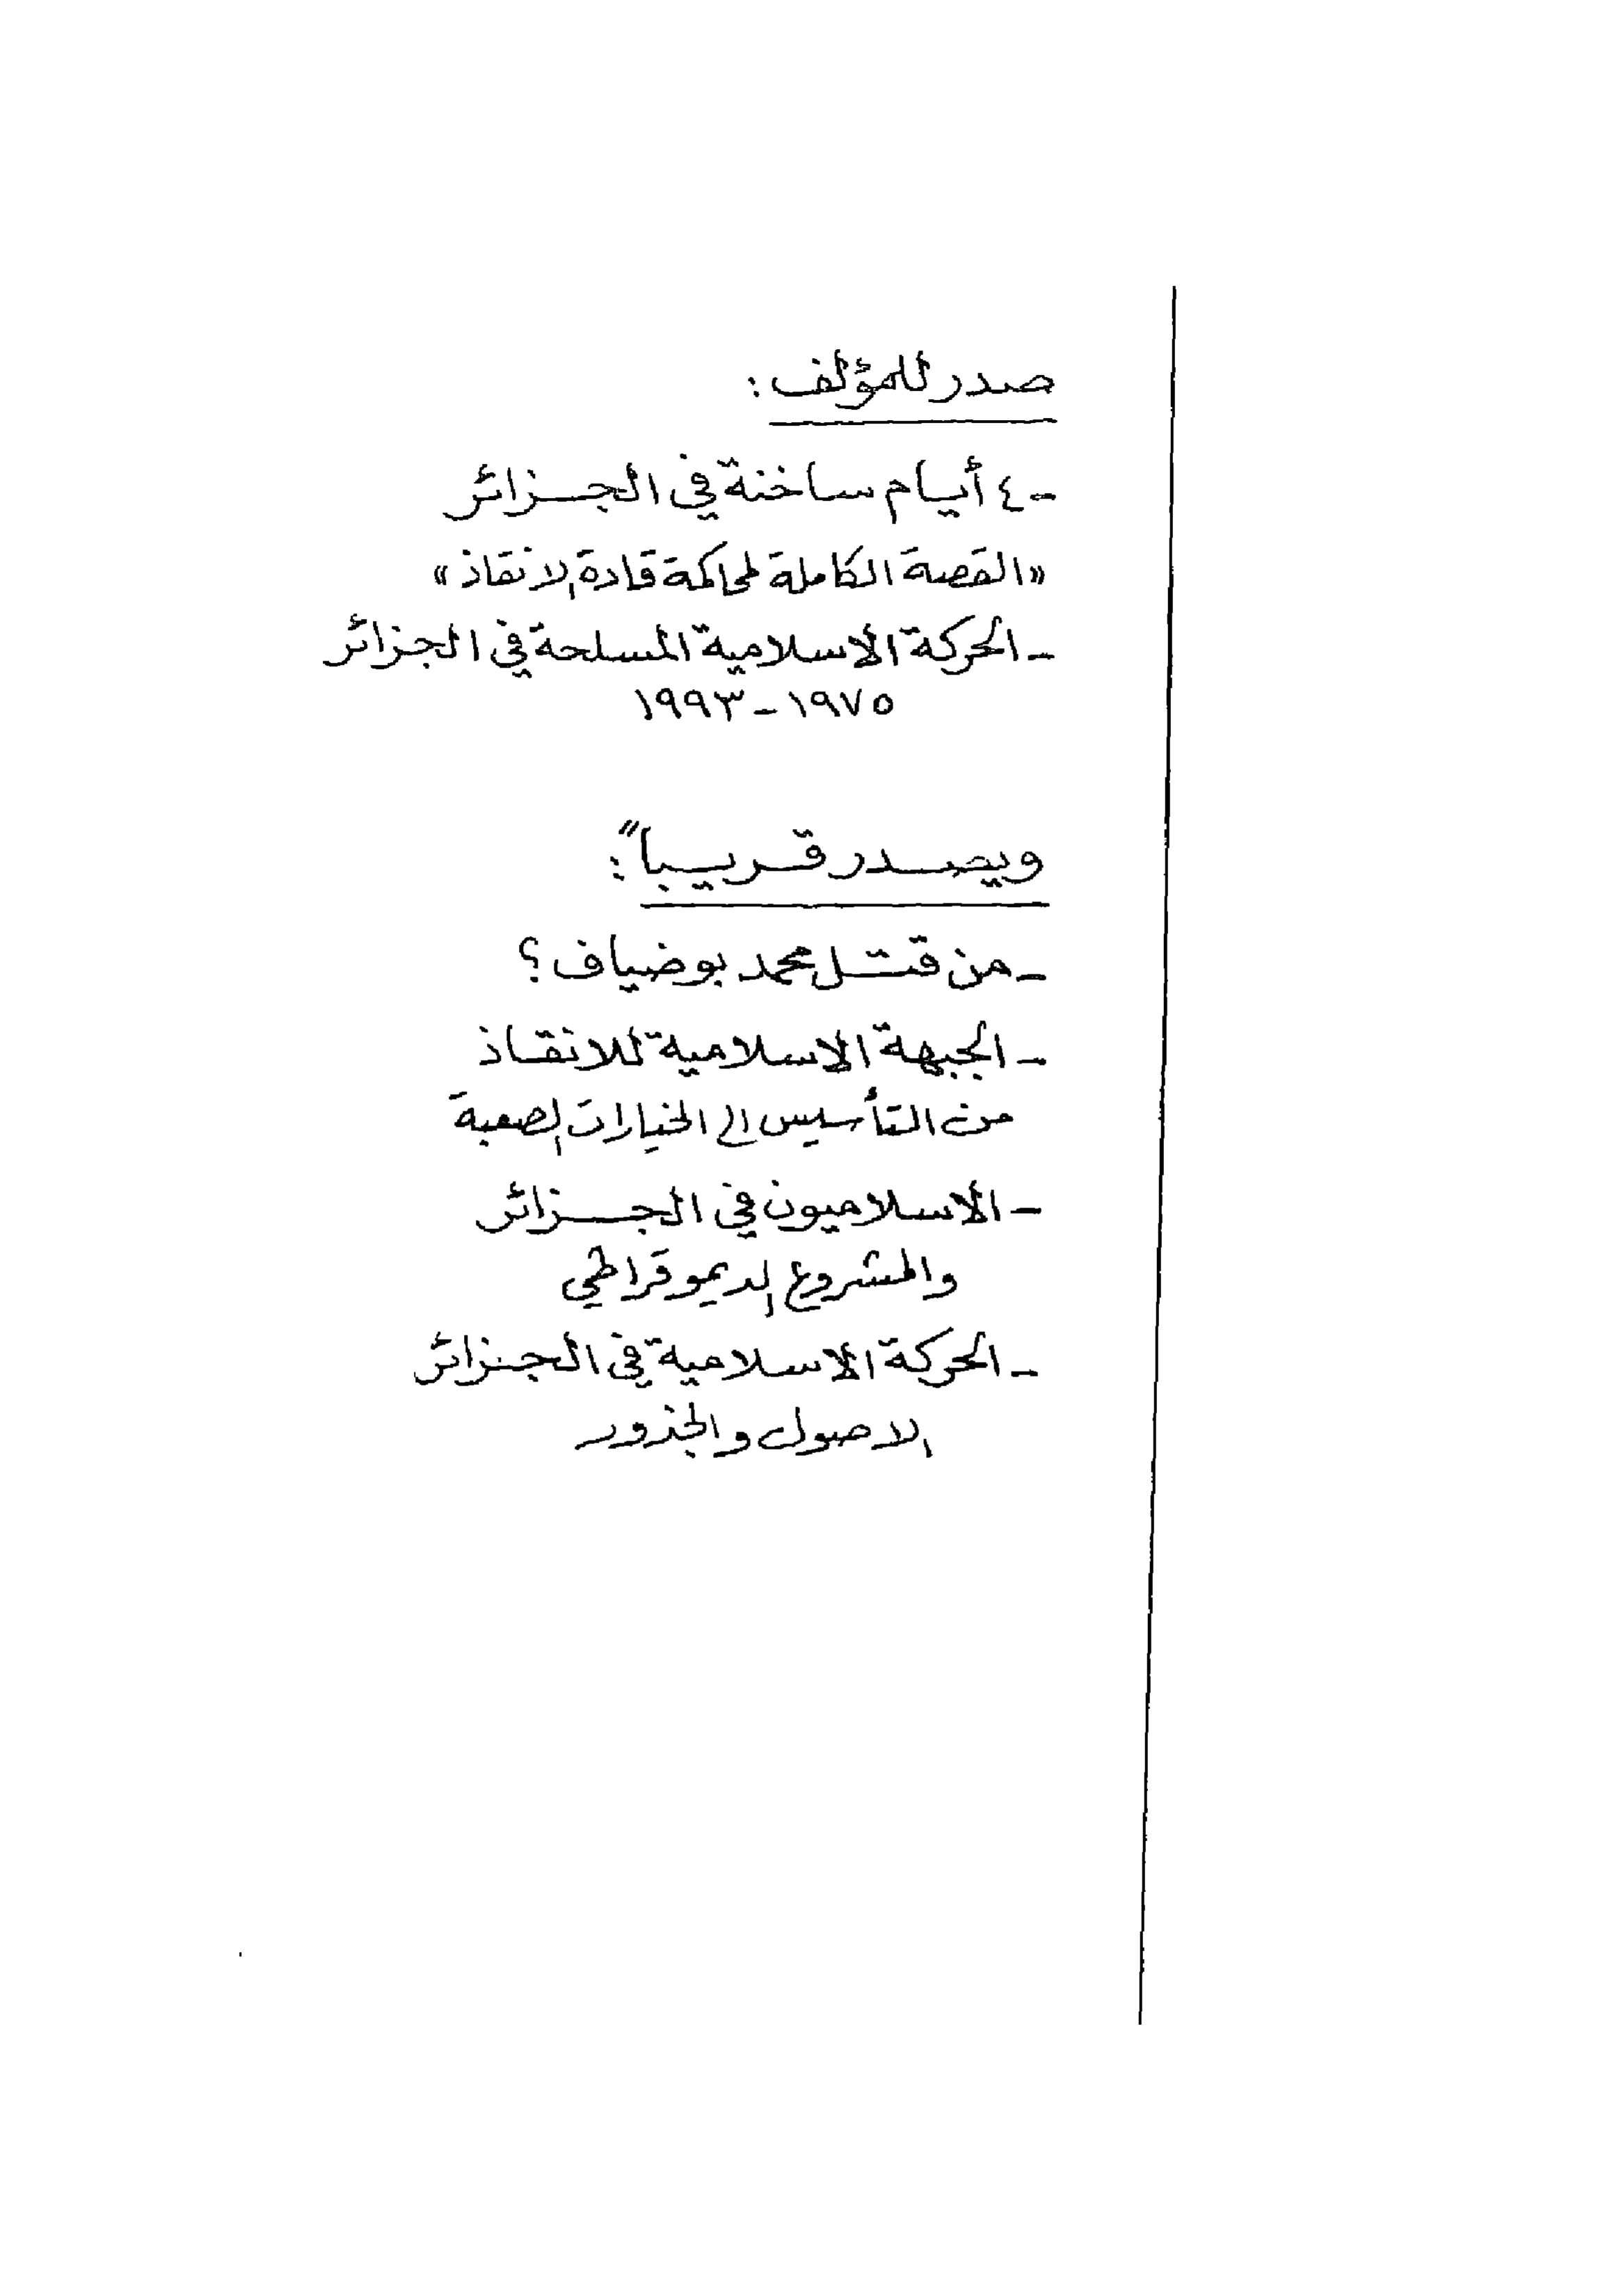 صدر للمؤلف:
- ٤ أيام ساخنة في الجزائر
«القصة الكاملة لمحاكمة قادة الانقاذ»
- الحركة الاسلامية المسلحة في الجزائر
١٩٧٥ - ١٩٩٣
ويصدر قريباً:
- من قتل محمد بوضياف؟
- الجبهة الاسلامية للانقاذ
من التأسيس الى الخيارات الصعبة
- الاسلاميون في الجزائر
والمشروع الديموقراطي
- الحركة الاسلامية في الجزائر
الاصول والجذور